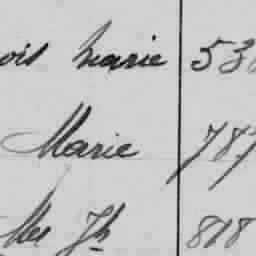 ois Marie 53
Marie 787
Mee Jh 818